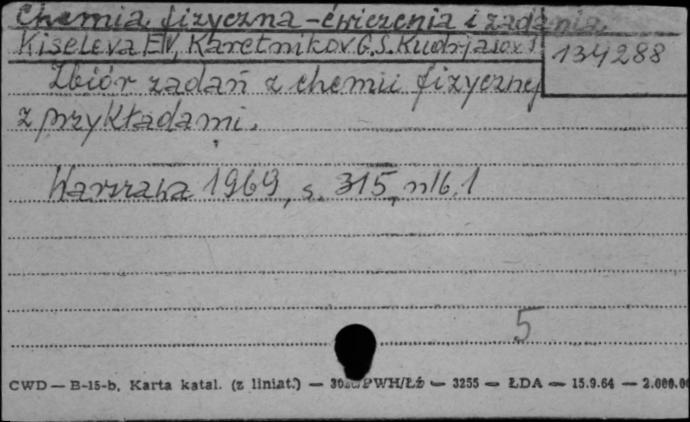 Chemia fizyczna - ćwiczenia i zadania
Kiseleva E.W, Karetnikov. G.S. Kudrjasov I
134288
Zbiór zadań z chemii fizycznej
z przykładami.
Warszawa 1969, s. 315, nlb. 1
5
CWD — B-15-b. Karta katal. (z liniat.) — PWH/Łź — 3255 — ŁDA — 15.9.64 — 2.000.00